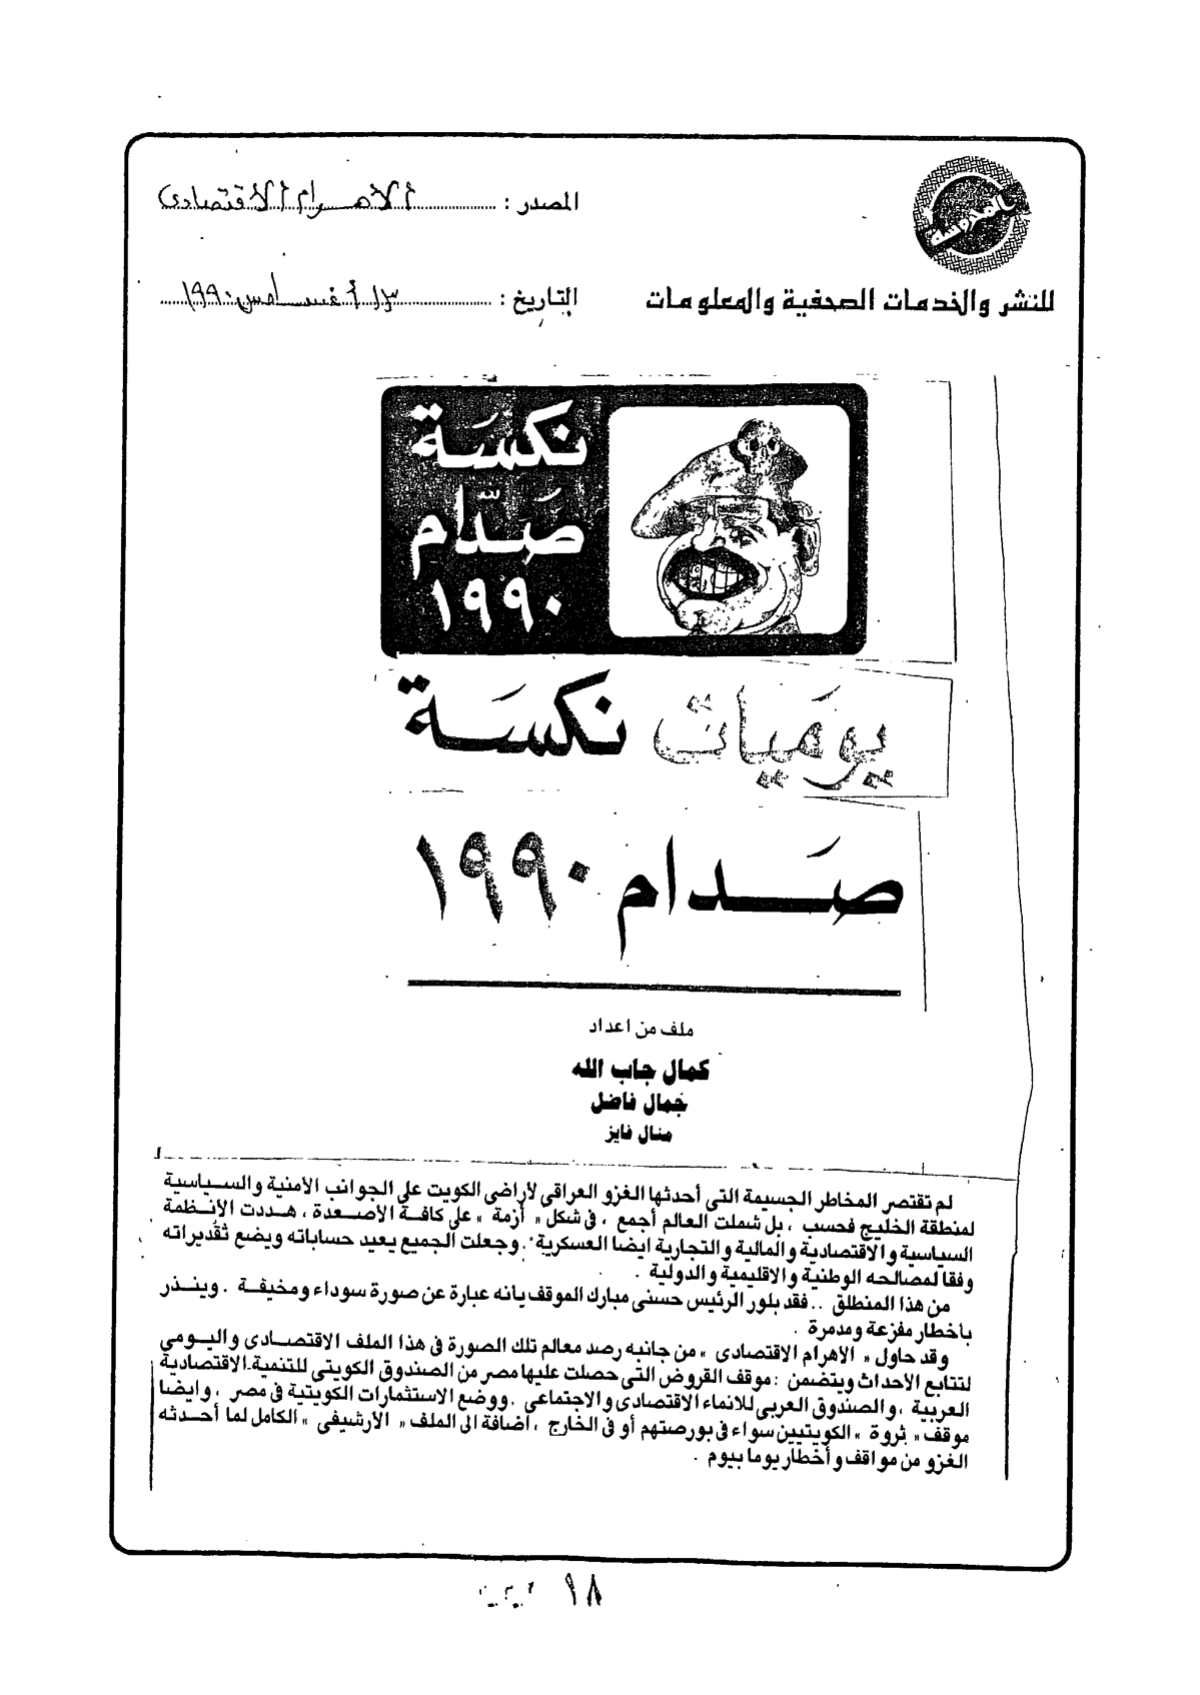 المصدر : الأهرام الاقتصادى
للنشر والخدمات الصحفية والمعلومات
التاريخ : ١٣ أغسطس ١٩٩٠
نكسة
صدّام
١٩٩٠
يوميات نكسة
صدام ١٩٩٠
ملف من اعداد
كمال جاب الله
جمال فاضل
منال فايز
لم تقتصر المخاطر الجسيمة التى أحدثها الغزو العراقى لأراضى الكويت على الجوانب الأمنية والسياسية
لمنطقة الخليج فحسب ، بل شملت العالم أجمع ، فى شكل « أزمة » على كافة الأصعدة ، هددت الأنظمة
السياسية والاقتصادية والمالية والتجارية ايضا العسكرية . وجعلت الجميع يعيد حساباته ويضع تقديراته
وفقا لمصالحه الوطنية والاقليمية والدولية .
من هذا المنطلق .. فقد بلور الرئيس حسنى مبارك الموقف بانه عبارة عن صورة سوداء ومخيفة . وينذر
بأخطار مفزعة ومدمرة .
وقد حاول « الأهرام الاقتصادى » من جانبه رصد معالم تلك الصورة فى هذا الملف الاقتصادى واليومى
لتتابع الأحداث ويتضمن : موقف القروض التى حصلت عليها مصر من الصندوق الكويتى للتنمية الاقتصادية
العربية ، والصندوق العربى للانماء الاقتصادى والاجتماعى . ووضع الاستثمارات الكويتية فى مصر ، وايضا
موقف « ثروة » الكويتيين سواء فى بورصتهم أو فى الخارج ، اضافة الى الملف « الأرشيفى » الكامل لما أحدثه
الغزو من مواقف وأخطار يوما بيوم .
١٨